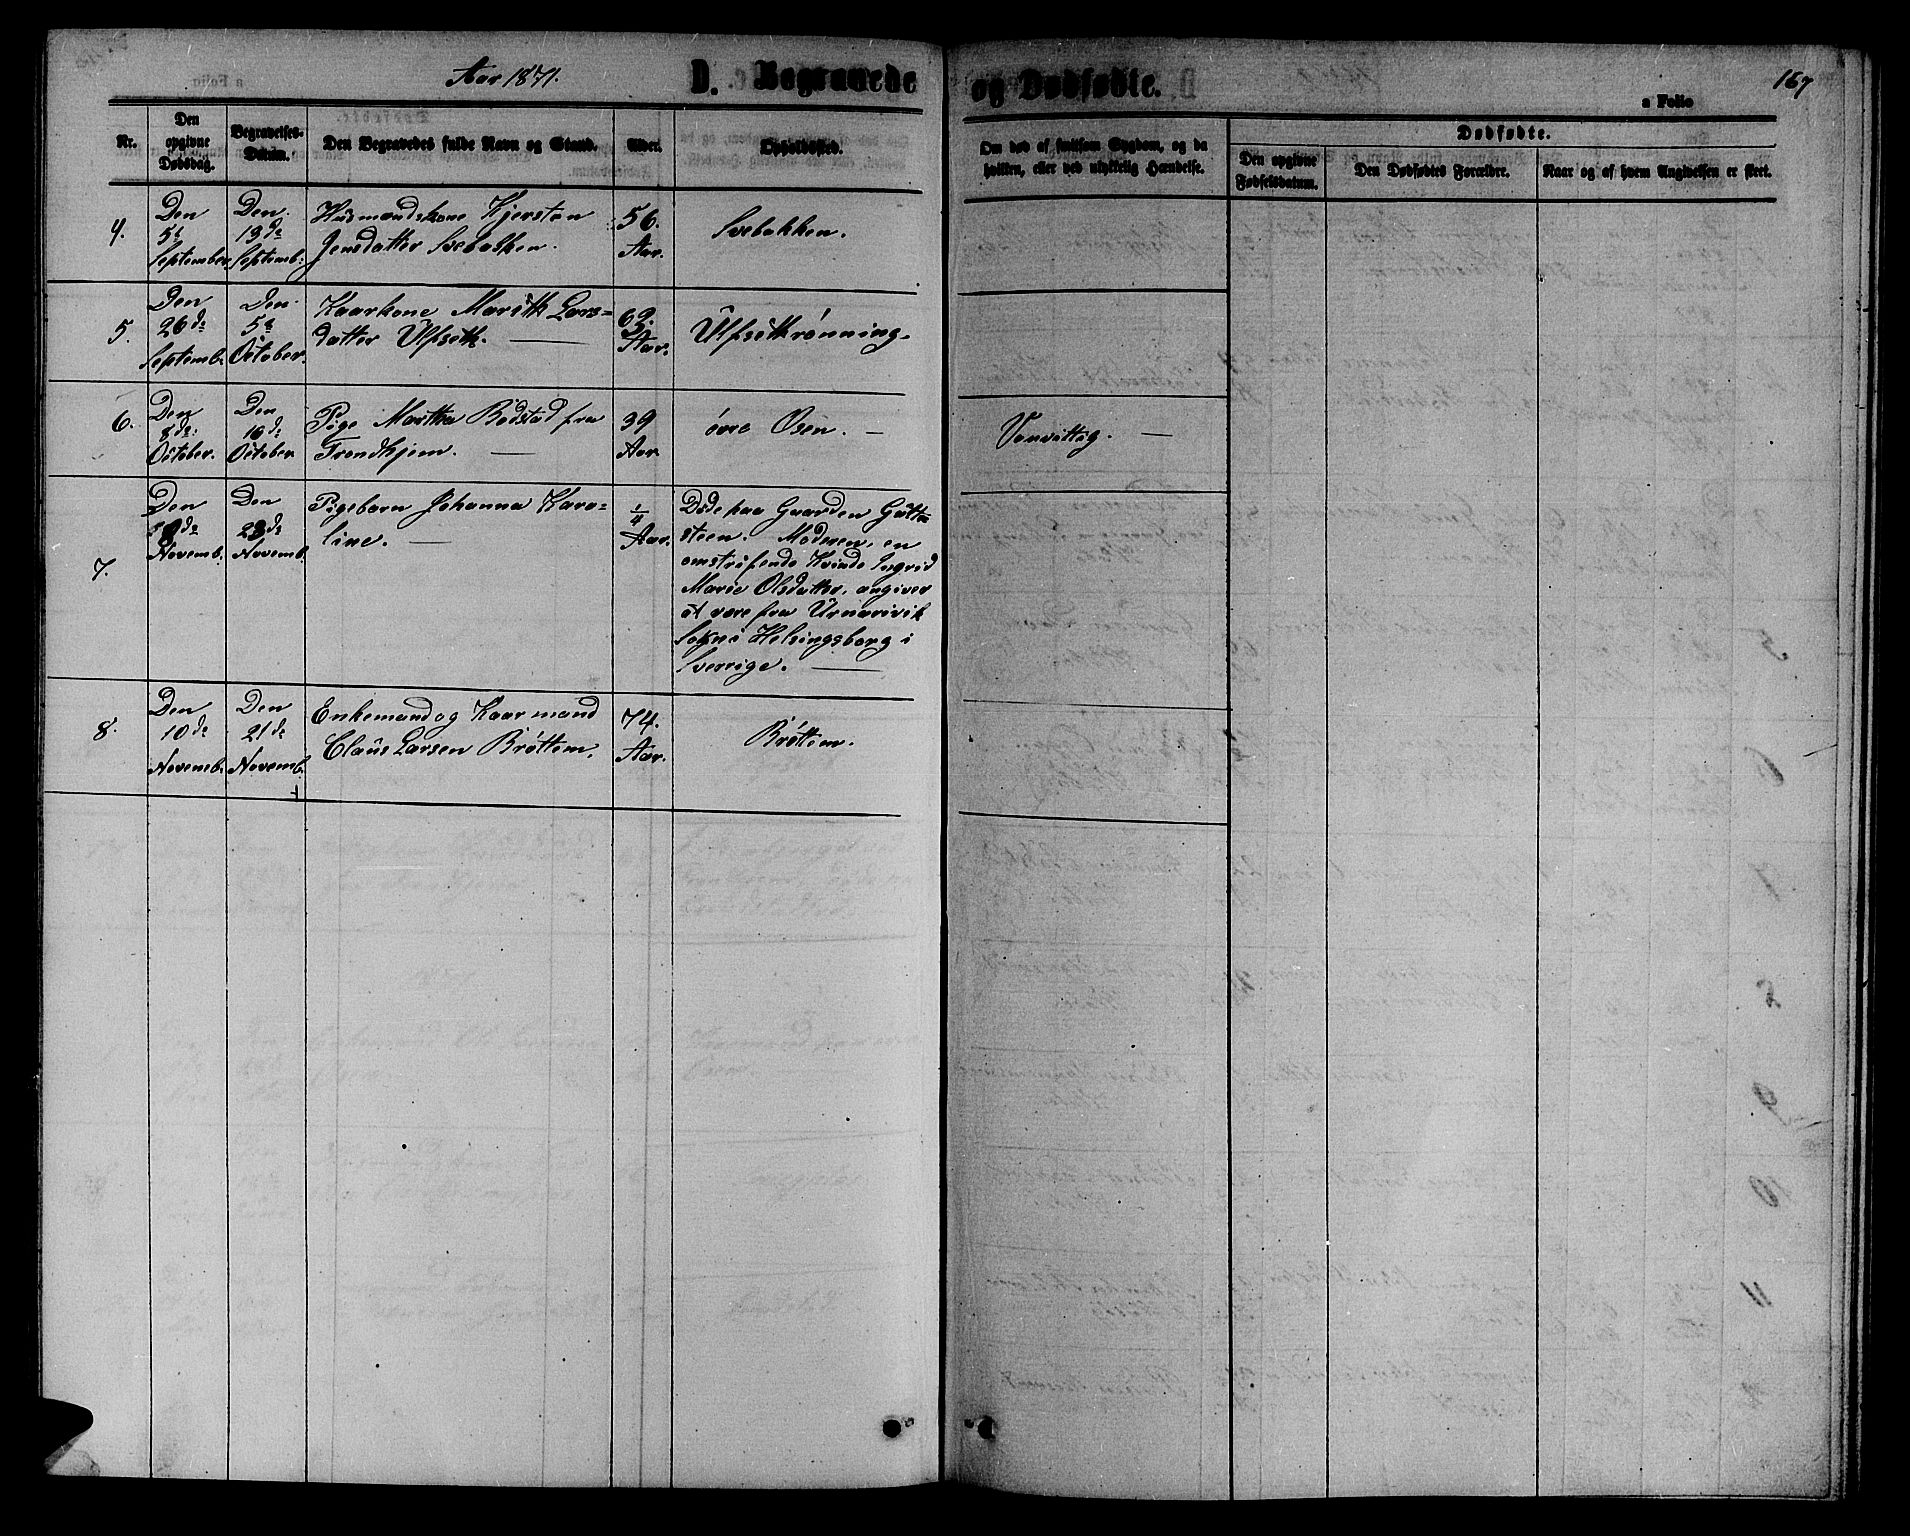 Aar 1871.
D. Begravede og Dødfødte.
167
a Folio
Nr.
Den opgivne Dødsdag.
Begravelses-Datum.
Den Begravedes fulde Navn og Stand.
Alder.
Opholdssted.
Om død af smitsom Sygdom, og da
hvilken, eller ved ulykkelig Hændelse.
Dødfødte.
Den opgivne Fødselsdatum.
Den Dødfødtes Forældre.
Naar og af hvem Angivelsen er skeet.
4.
Den
5te
September
Den
13de
Septemb:
Husmandskone Kjersten
Jensdatter Svebakken.
56.
Aar.
Svebakken.
5.
Den
26de
Septemb.
Den
5te
October.
Kaarkone Marith Lars-
datter Ulfseth. —
69.
Aar.
Ulfsethrønning.
6.
Den
8de
October.
Den
16de
October
Pige Martha Bodstad fra
Trondhjem. —
39
Aar
øvre Osen. —
Vanvittig. —
7.
Den
Novemb.
Den
23de
Novemb.
Pigebarn Johanna Karo-
line. —
1/4
Aar.
Døde paa Gaarden
steen. Moderen, en
omstrifende Kvinde Ingrid
Marie Olsdatter, angiver
at være fra
Sogn i Helsingsborg i
Sverrige. —
8.
Den
10de
Novemb.
Den
21de
Novemb.
Enkemand og Kaarmand
Claus Larsen Brøttem.
74.
Aar.
Brøttem.